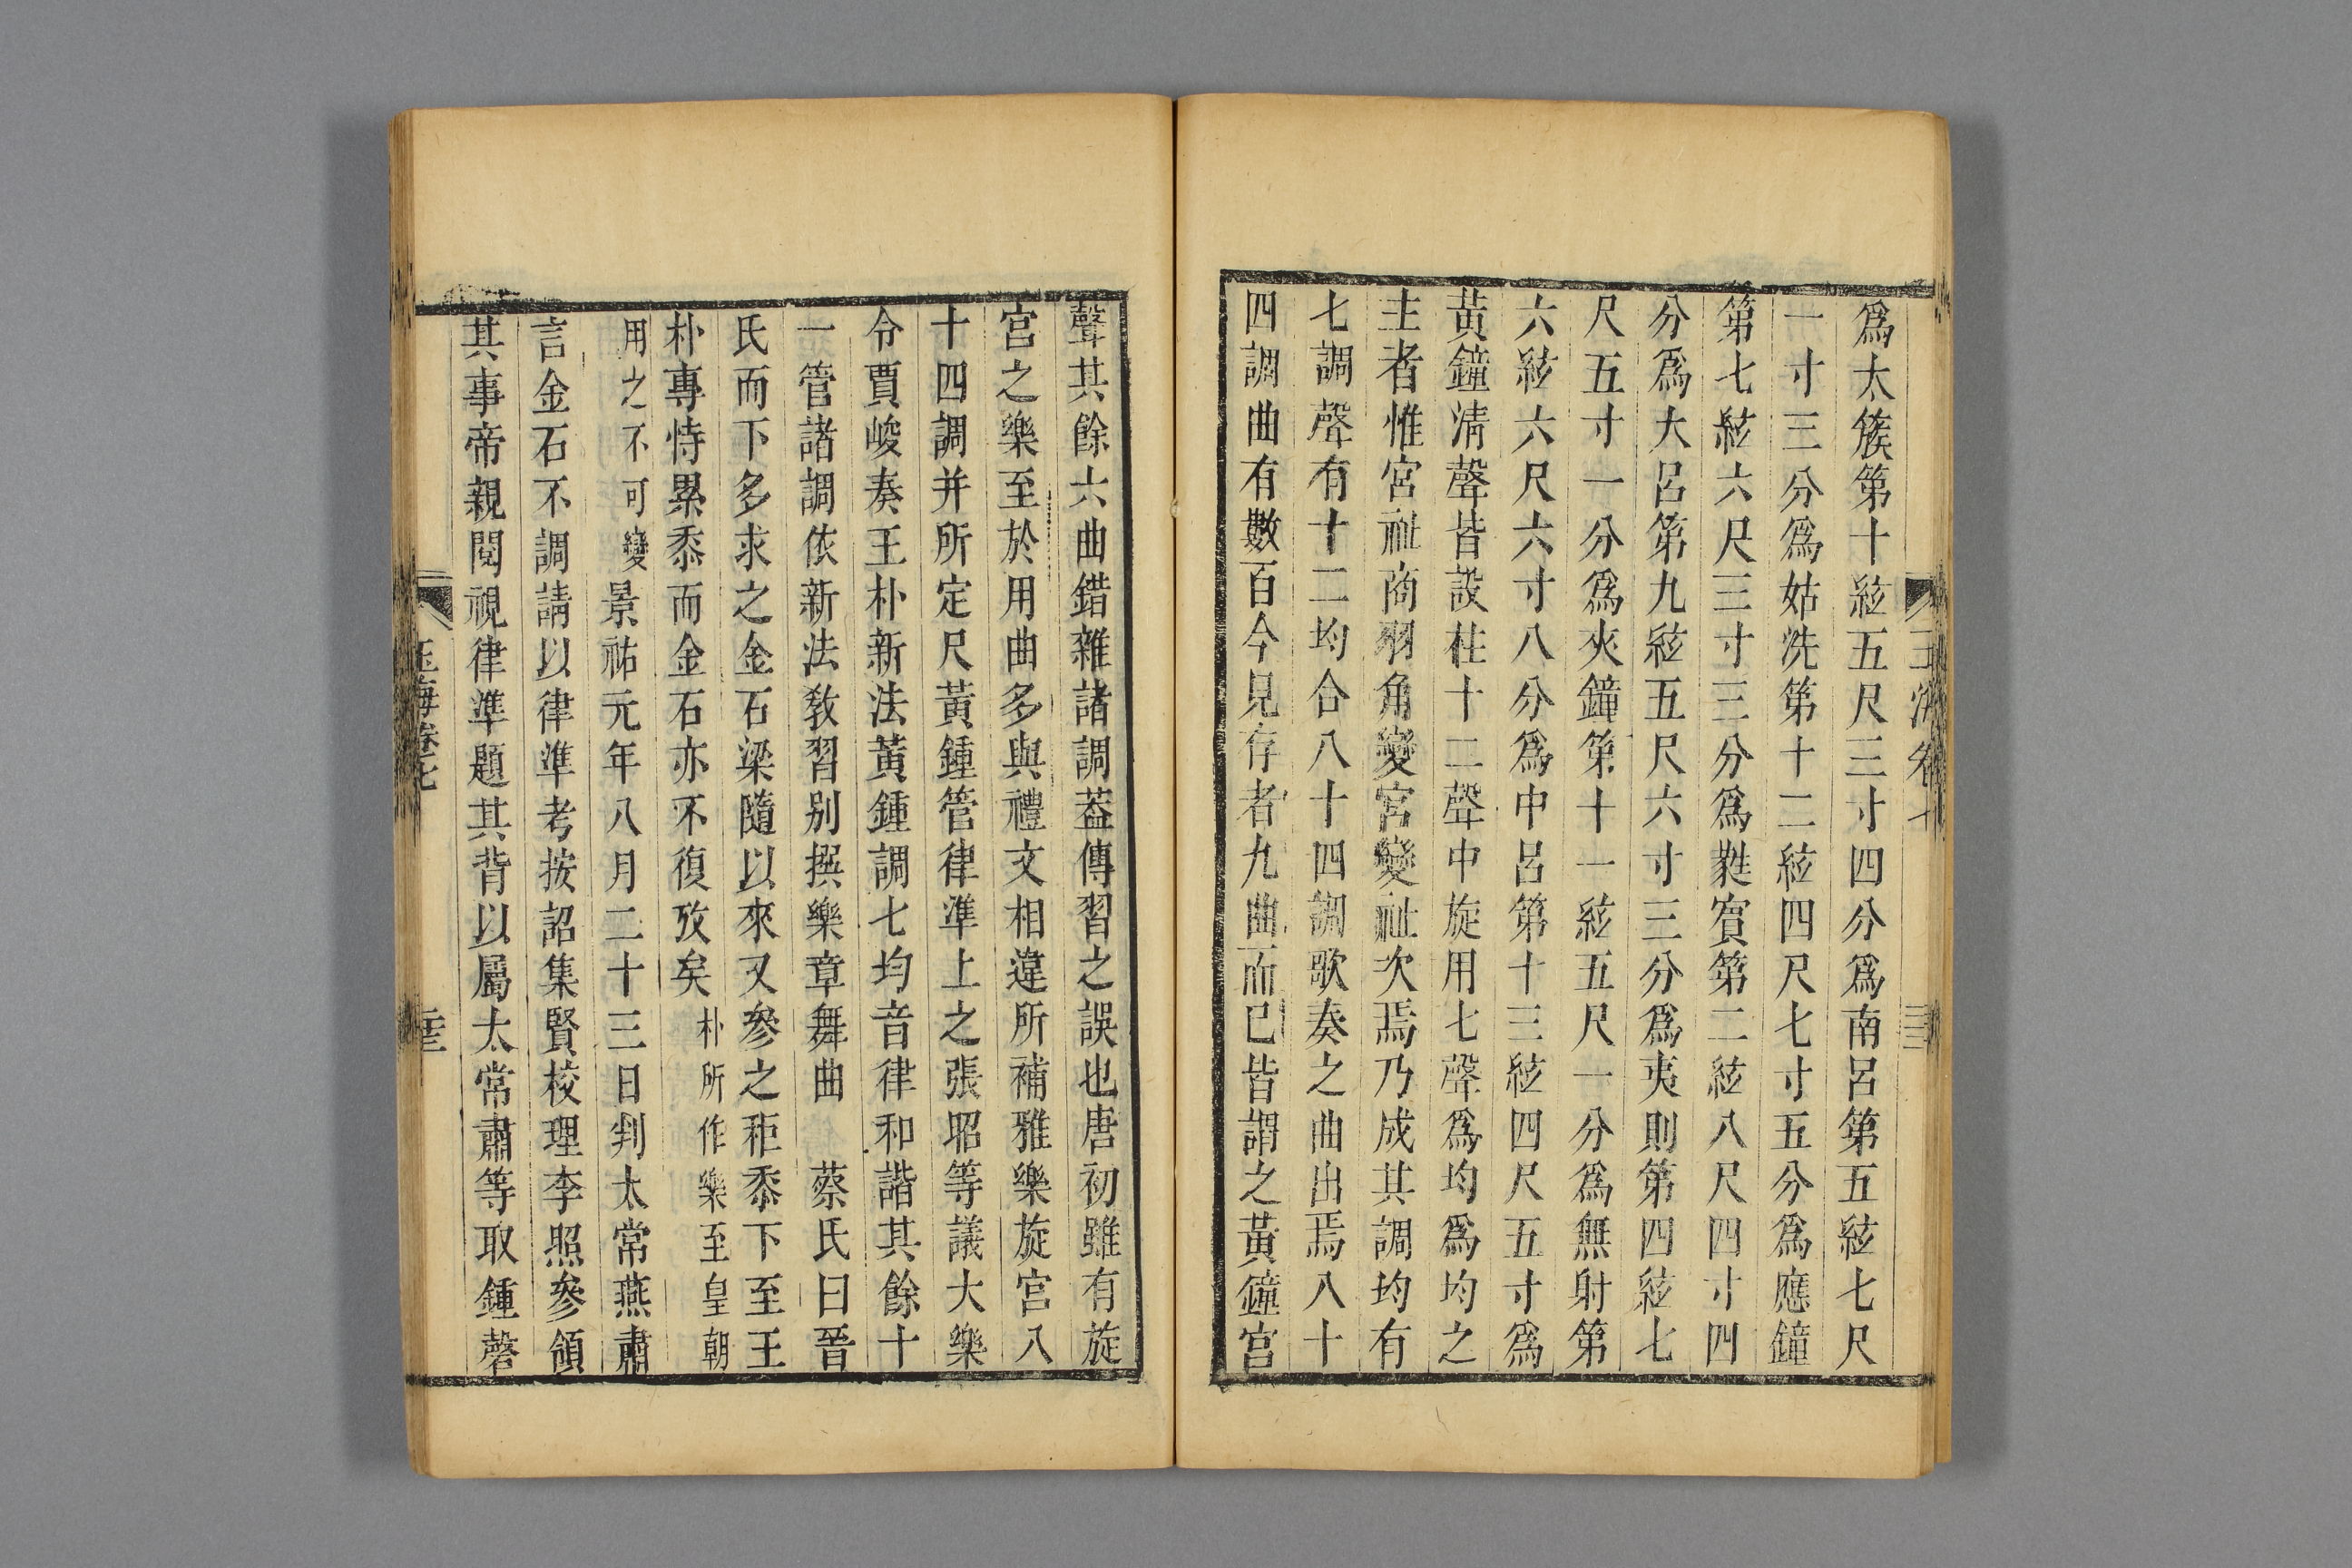 爲太簇第十絃五尺三寸四分爲南呂第五絃七尺
一寸三分爲姑洗第十二絃四尺七寸五分爲應鐘
第七絃六尺三寸三分爲蕤賓第二絃八尺四寸四
分爲大呂第九絃五尺六寸三分爲夷則第四絃七
尺五寸一分爲夾鐘第十一絃五尺一分爲無射第
六絃六尺六寸八分爲中呂第十三絃四尺五寸爲
黃鐘淸聲皆設柱十二聲中旋用七聲爲均爲均之
主者惟宮祉商羽角變宮變祉次焉乃成其調均有
七調聲有十二均合八十四調歌奏之曲由焉八十
四調曲有數百今見存者九曲而已皆謂之黃鐘宮
聲其餘六曲錯雜諸調葢傳習之誤也唐初雖有旋
宮之樂至於用曲多與禮文相違所補雅樂旋宮八
十四調并所定尺黃鍾管律準上之張昭等議大樂
令賈峻奏王朴新法黃鍾調七均音律和諧其餘十
一管諸調依新法敎習别撰樂章舞曲 蔡氏曰晉
氏而下多求之金石梁隨以來又參之秬黍下至王
朴專恃累黍而金石亦不復攷矣朴所作樂至皇朝
用之不可變景祐元年八月二十三日判太常燕肅
言金石不調請以律準考按詔集賢校理李照參領
其事帝親閱視律準題其背以屬太常肅等取鍾磬
玉海卷七